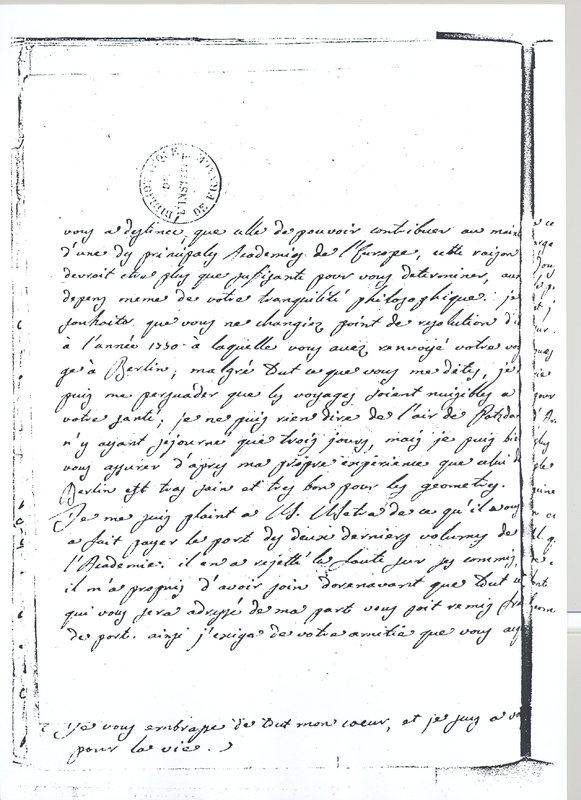 BIBLIOTHEQUE DE L'INSTITUT DE FRANCE
vous a destiné que celle de pouvoir contribuer au main
d'une des principales Academies de l'Europe, cette raison
devroit etre plus que suffisante pour vous determiner, aux
depens meme de votre tranquilité philosophique. je
souhaite que vous ne changiez point de resolution d'i
à l'année à laquelle vous avez renvoyé votre vo
ge à Berlin; malgré tout ce que vous me dites, je
puis me persuader que les voyages soient nuisibles a
votre santé; je ne puis rien dire de l'air de Potzda
n'y ayant sejourné que trois jours, mais je puis bi
vous assurer d'apres ma propre experience que celui d
Berlin est tres sain et tres bon pour les geometres.
Je me suis plaint a M. Metra de ce qu'il vous
a fait payer le port des deux derniers volumes de
l'Academie. il en a rejetté la faute sur ses commis,
il m'a promis d'avoir soin dorenavant que tout ce
qui vous sera adressé de ma part vous soit remis fra
de port. ainsi j'exige de votre amitié que vous ay
Je vous embrasse de tout mon coeur, et je suis a vo
pour la vie.